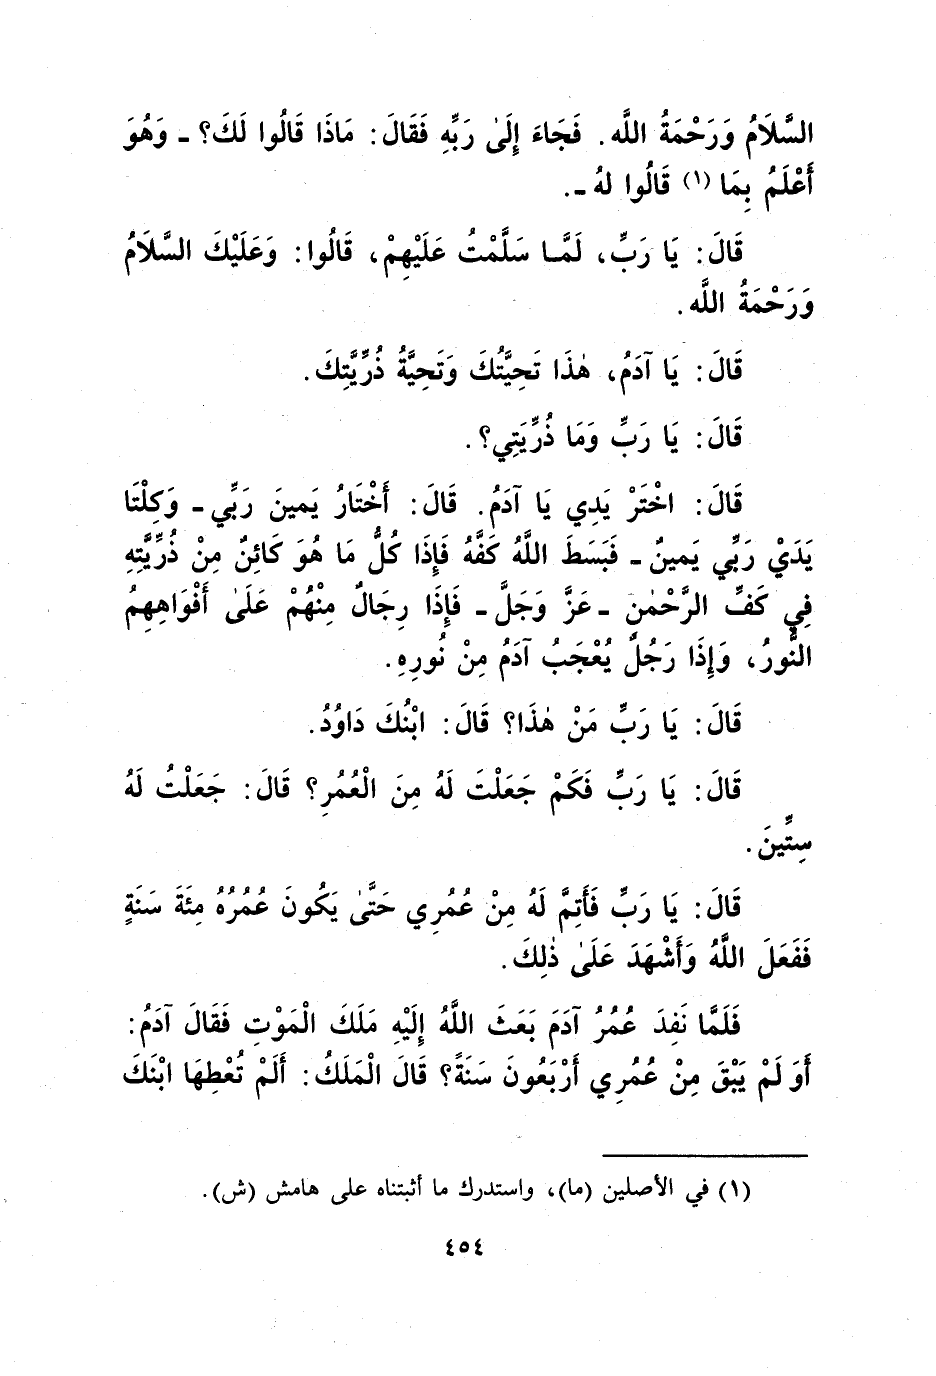 السَّلَامُ وَرَحْمَةُ اللَّه. فَجَاءَ إِلَىٰ رَبِّهِ فَقَالَ: مَاذَا قَالُوا لَكَ؟ ـ وَهُوَ
أَعْلَمُ بِمَا (١) قَالُوا لهُ ـ.
قَالَ: يَا رَبِّ، لَمَّا سَلَّمْتُ عَلَيْهِمْ، قَالُوا: وَعَلَيْكَ السَّلَامُ
وَرَحْمَةُ اللَّه.
قَالَ: يَا آدَمُ، هٰذَا تَحِيَّتُكَ وَتَحِيَّةُ ذُرِّيَّتِكَ.
قَالَ: يَا رَبِّ وَمَا ذُرِّيَتِي؟.
قَالَ: اخْتَرْ يَدِي يَا آدَمُ. قَالَ: أَخْتَارُ يَمينَ رَبِّي ـ وَكِلْتَا
يَدَيْ رَبِّي يَمينٌ ـ فَبَسَطَ اللَّهُ كَفَّهُ فَإِذَا كُلُّ مَا هُوَ كَائِنٌ مِنْ ذُرِّيَّتِهِ
فِي كَفِّ الرَّحْمٰنِ ـ عَزَّ وَجَلَّ ـ فَإِذَا رِجَالٌ مِنْهُمْ عَلَىٰ أَفْوَاهِهِمُ
النُّورُ، وَإِذَا رَجُلٌ يُعْجَبُ آدَمُ مِنْ نُورِهِ.
قَالَ: يَا رَبِّ مَنْ هٰذَا؟ قَالَ: ابْنُكَ دَاوُدُ.
قَالَ: يَا رَبِّ فَكَمْ جَعَلْتَ لَهُ مِنَ الْعُمُرِ؟ قَالَ: جَعَلْتُ لَهُ
سِتِّينَ.
قَالَ: يَا رَبِّ فَأَتِمَّ لَهُ مِنْ عُمُرِي حَتَّىٰ يَكُونَ عُمُرُهُ مِئَةَ سَنَةٍ
فَفَعَلَ اللَّهُ وَأَشْهَدَ عَلَىٰ ذٰلِكَ.
فَلَمَّا نَفِدَ عُمُرُ آدَمَ بَعَثَ اللَّهُ إِلَيْهِ مَلَكَ الْمَوْتِ فَقَالَ آدَمُ:
أَوَ لَمْ يَبْقَ مِنْ عُمُرِي أَرْبَعُونَ سَنَةً؟ قَالَ الْمَلَكُ: أَلَمْ تُعْطِهَا ابْنَكَ
(١) في الأصلين (ما)، واستدرك ما أثبتناه على هامش (ش).
٤٥٤